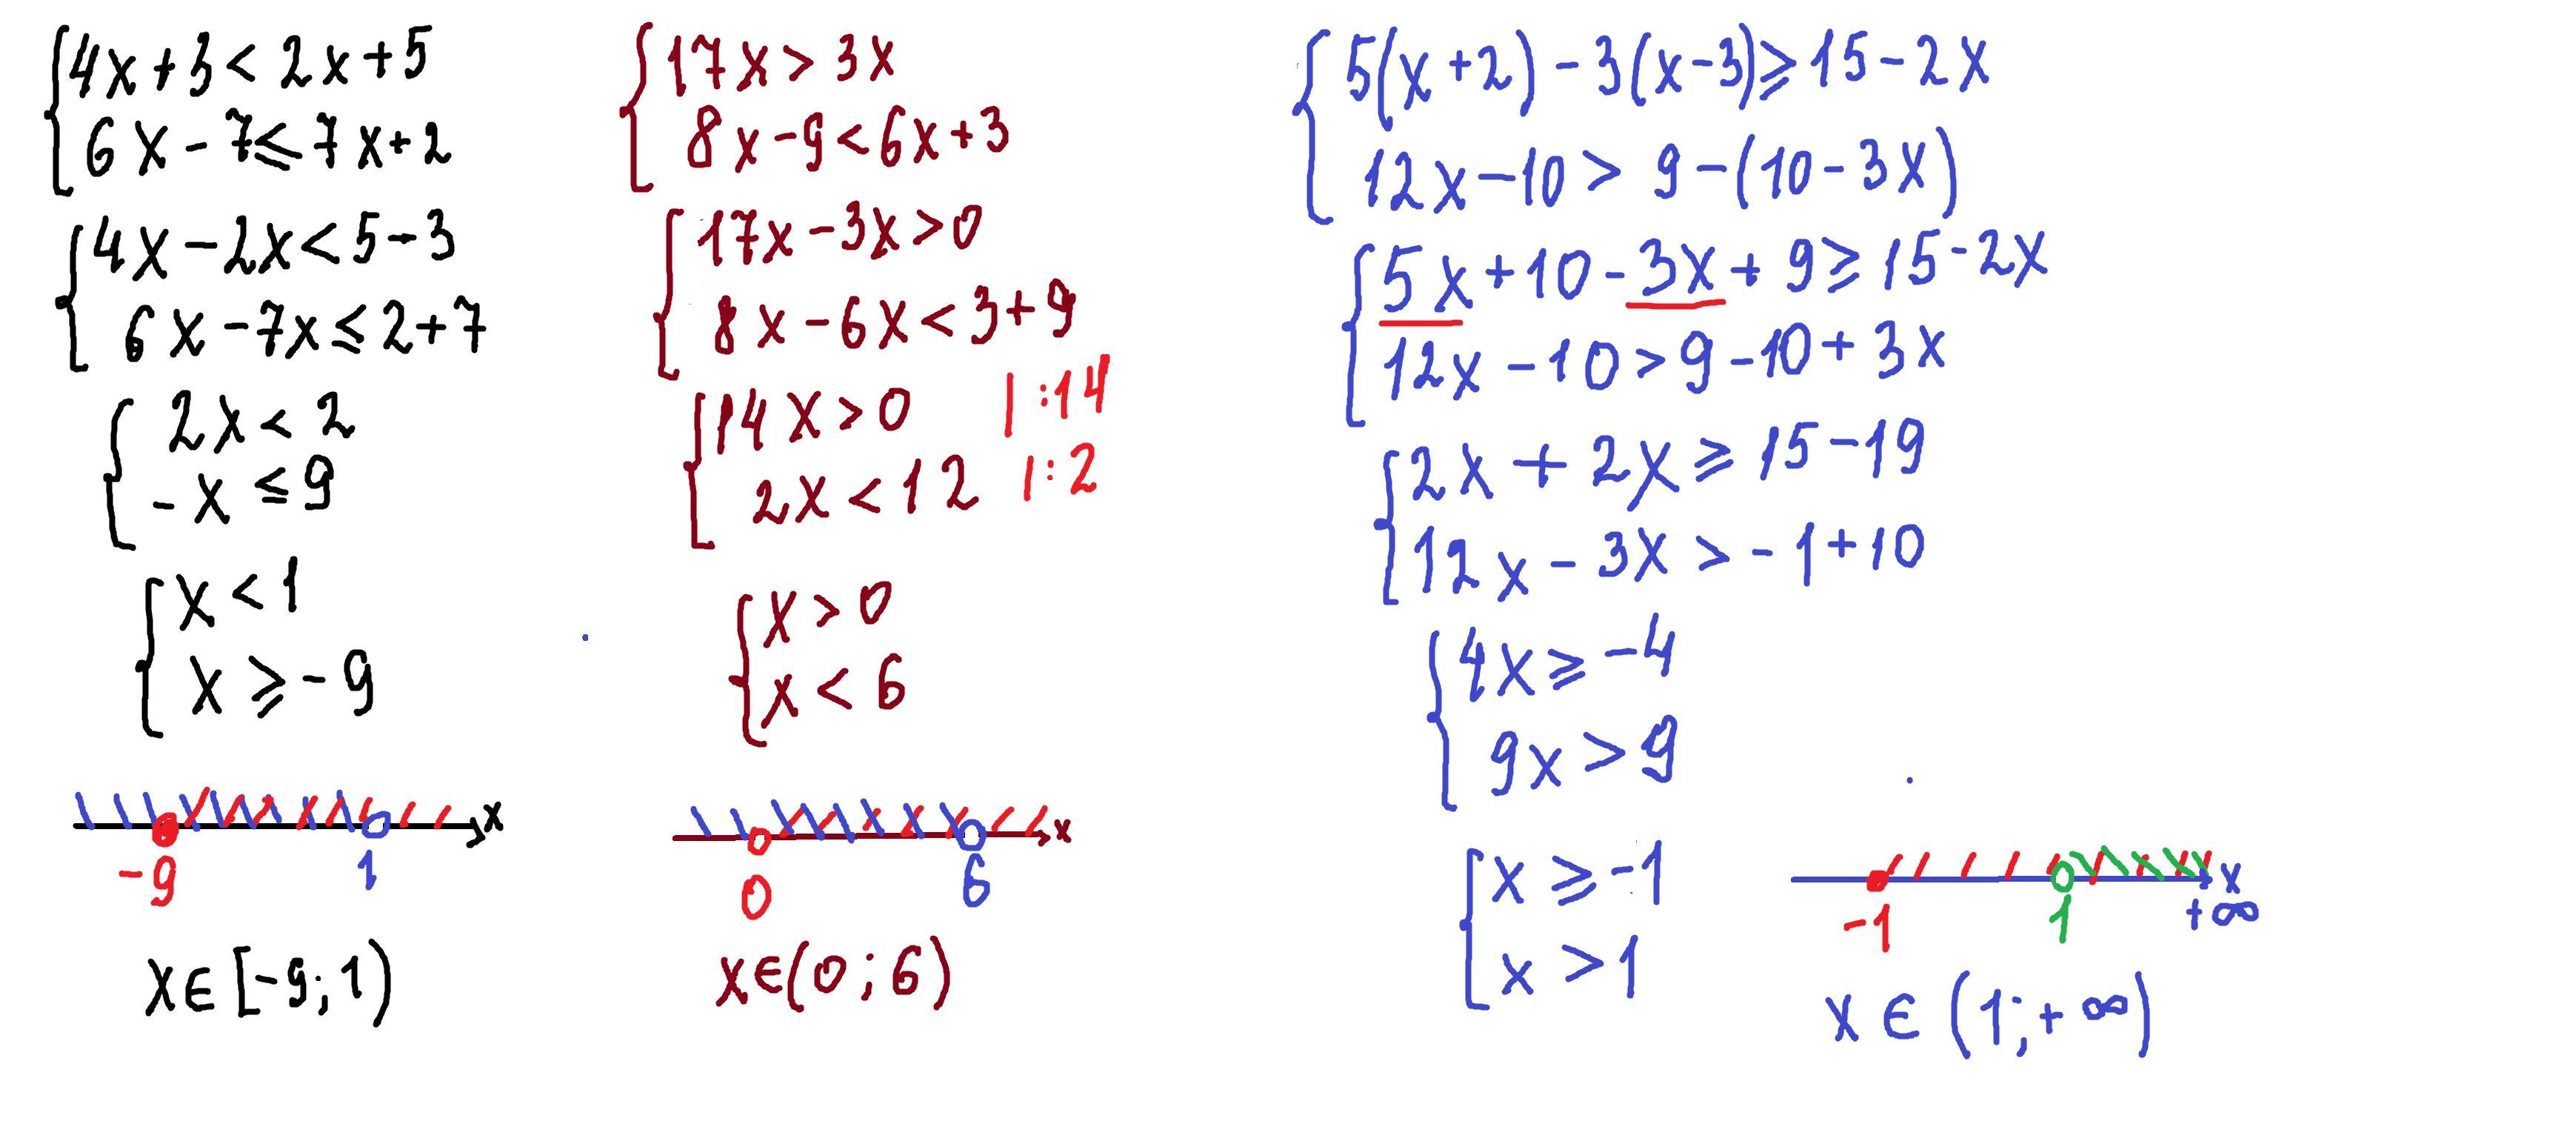 4x+3<2x+5
6x-7≤7x+2
4x-2x<5-3
6x-7x≤2+7
2x<2
-x≤9
x<1
x≥-9
x
-9 1
x∈[-9;1)
17x>3x
8x-9<6x+3
17x-3x>0
8x-6x<3+9
14x>0 |:14
2x<12 |:2
x>0
x<6
x
0 6
x∈(0;6)
5(x+2)-3(x-3)≥15-2x
12x-10>9-(10-3x)
5x+10-3x+9≥15-2x
12x-10>9-10+3x
2x+2x≥15-19
12x-3x>-1+10
4x≥-4
9x>9
x≥-1
x>1
x
-1 1 +∞
x∈(1;+∞)